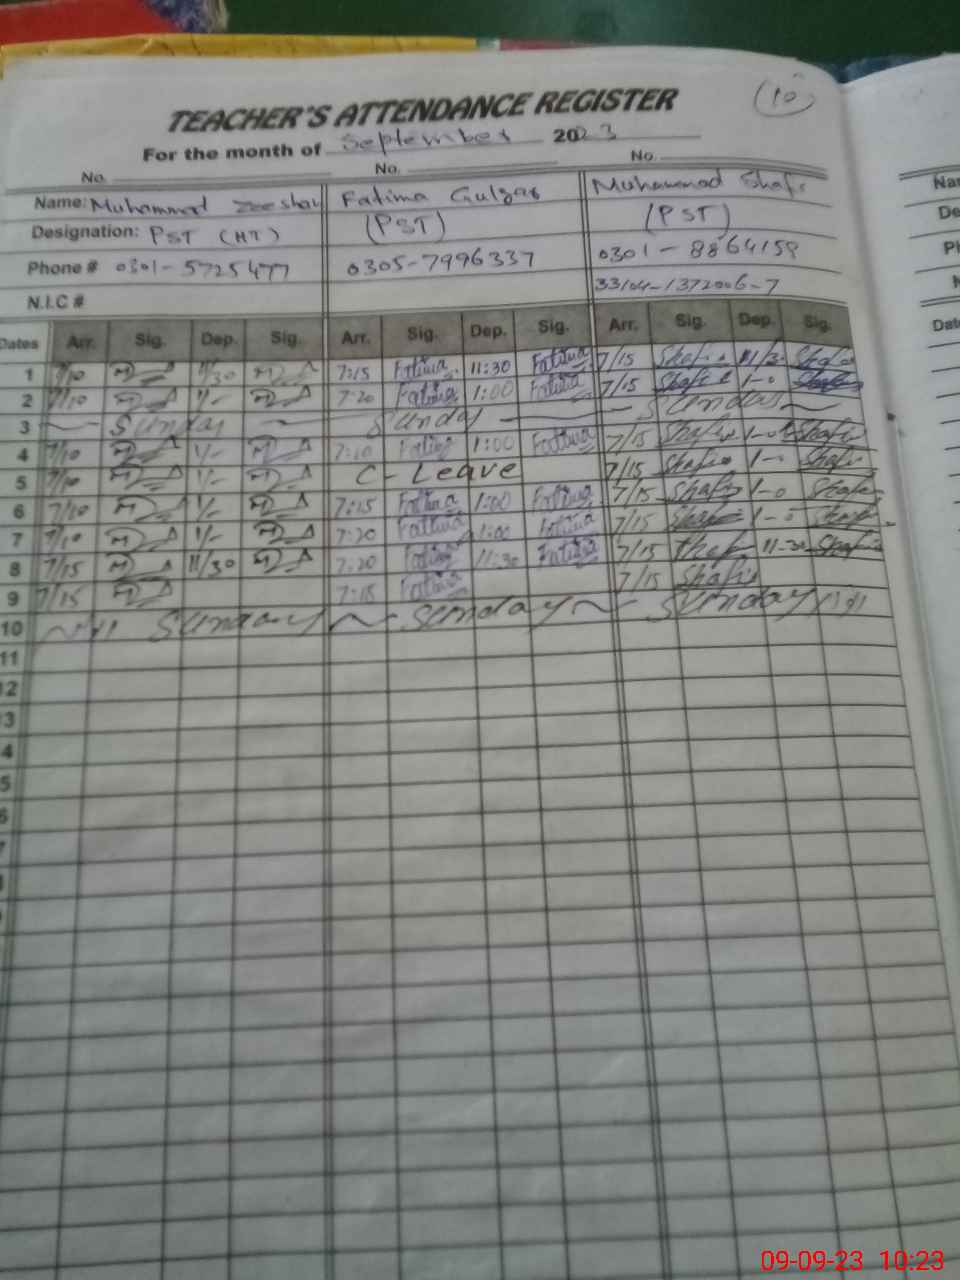 (10)
TEACHER'S ATTENDANCE REGISTER
For the month of September 2023
No. No. No.
Name: Muhammad Zeeshan Fatima Gulzar Muhammad Shafi
Designation: PST (HT) (PST) (PST)
Phone # 0301-5725477 0305-7996337 0301-8864159
N.I.C # 33104-1372006-7
Dates Arr. Sig. Dep. Sig. Arr. Sig. Dep. Sig. Arr. Sig. Dep. Sig.
1 7/10 11/30 7:15 Fatima 11:30 Fatima 7/15 Shafi 11/30 Shafi
2 7/10 1/- 7:20 Fatima 1:00 Fatima 7/15 Shafi 1-0 Shafi
3 Sunday Sunday Sunday
4 7/10 1/- 7:20 Fatima 1:00 Fatima 7/15 Shafi 1-0 Shafi
5 7/10 1/- C-Leave 7/15 Shafi 1-0 Shafi
6 7/10 1/- 7:15 Fatima 1:00 Fatima 7/15 Shafi 1-0 Shafi
7 7/10 1/- 7:20 Fatima 1:00 Fatima 7/15 Shafi 1-0 Shafi
8 7/15 11/30 7:20 Fatima 11:30 Fatima 7/15 Shafi 11-30 Shafi
9 7/15 7:15 Fatima 7/15 Shafi
10 Sunday Sunday Sunday
11
12
3
4
5
6
7
Nar
De
Ph
N
Date
09-09-23 10:23